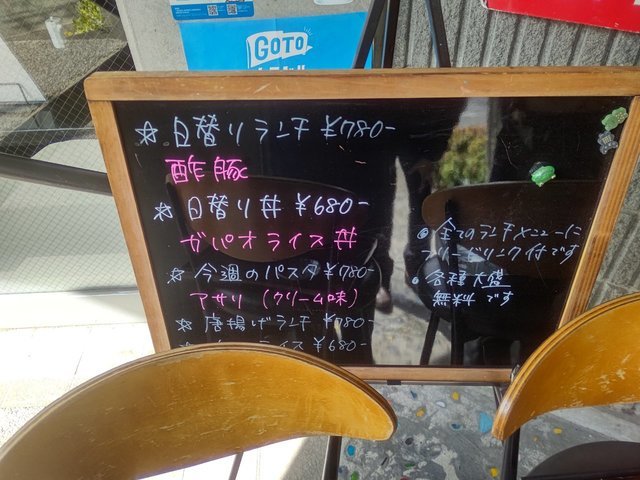 GOTO
☆ 日替りランチ ¥780-
酢豚
☆ 日替り丼 ¥680-
ガパオライス丼
☆ 今週のパスタ ¥780-
アサリ (クリーム味)
☆ 唐揚げランチ ¥780-
ライス ¥680-
◎ 全てのランチメニューに
フリードリンク付です
◎ 各種大盛
無料です